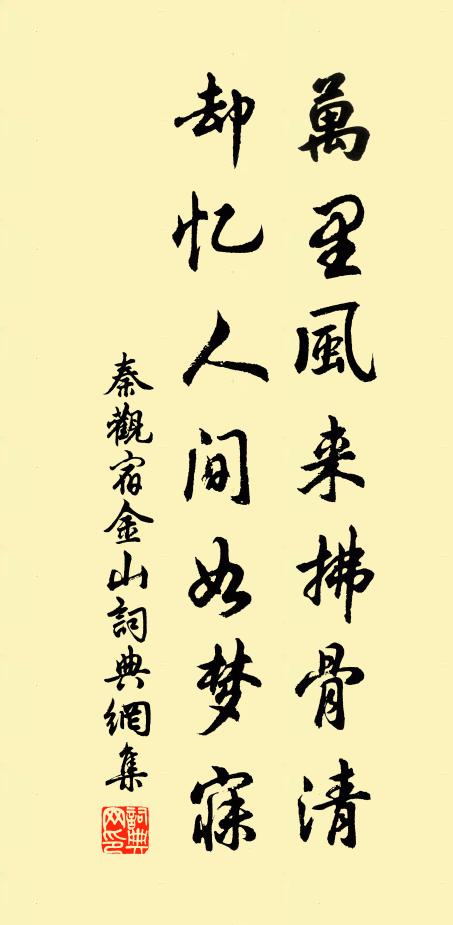 萬里風来拂骨清
却忆人间如梦寐
秦觀宿金山詞典網集
詞典网印